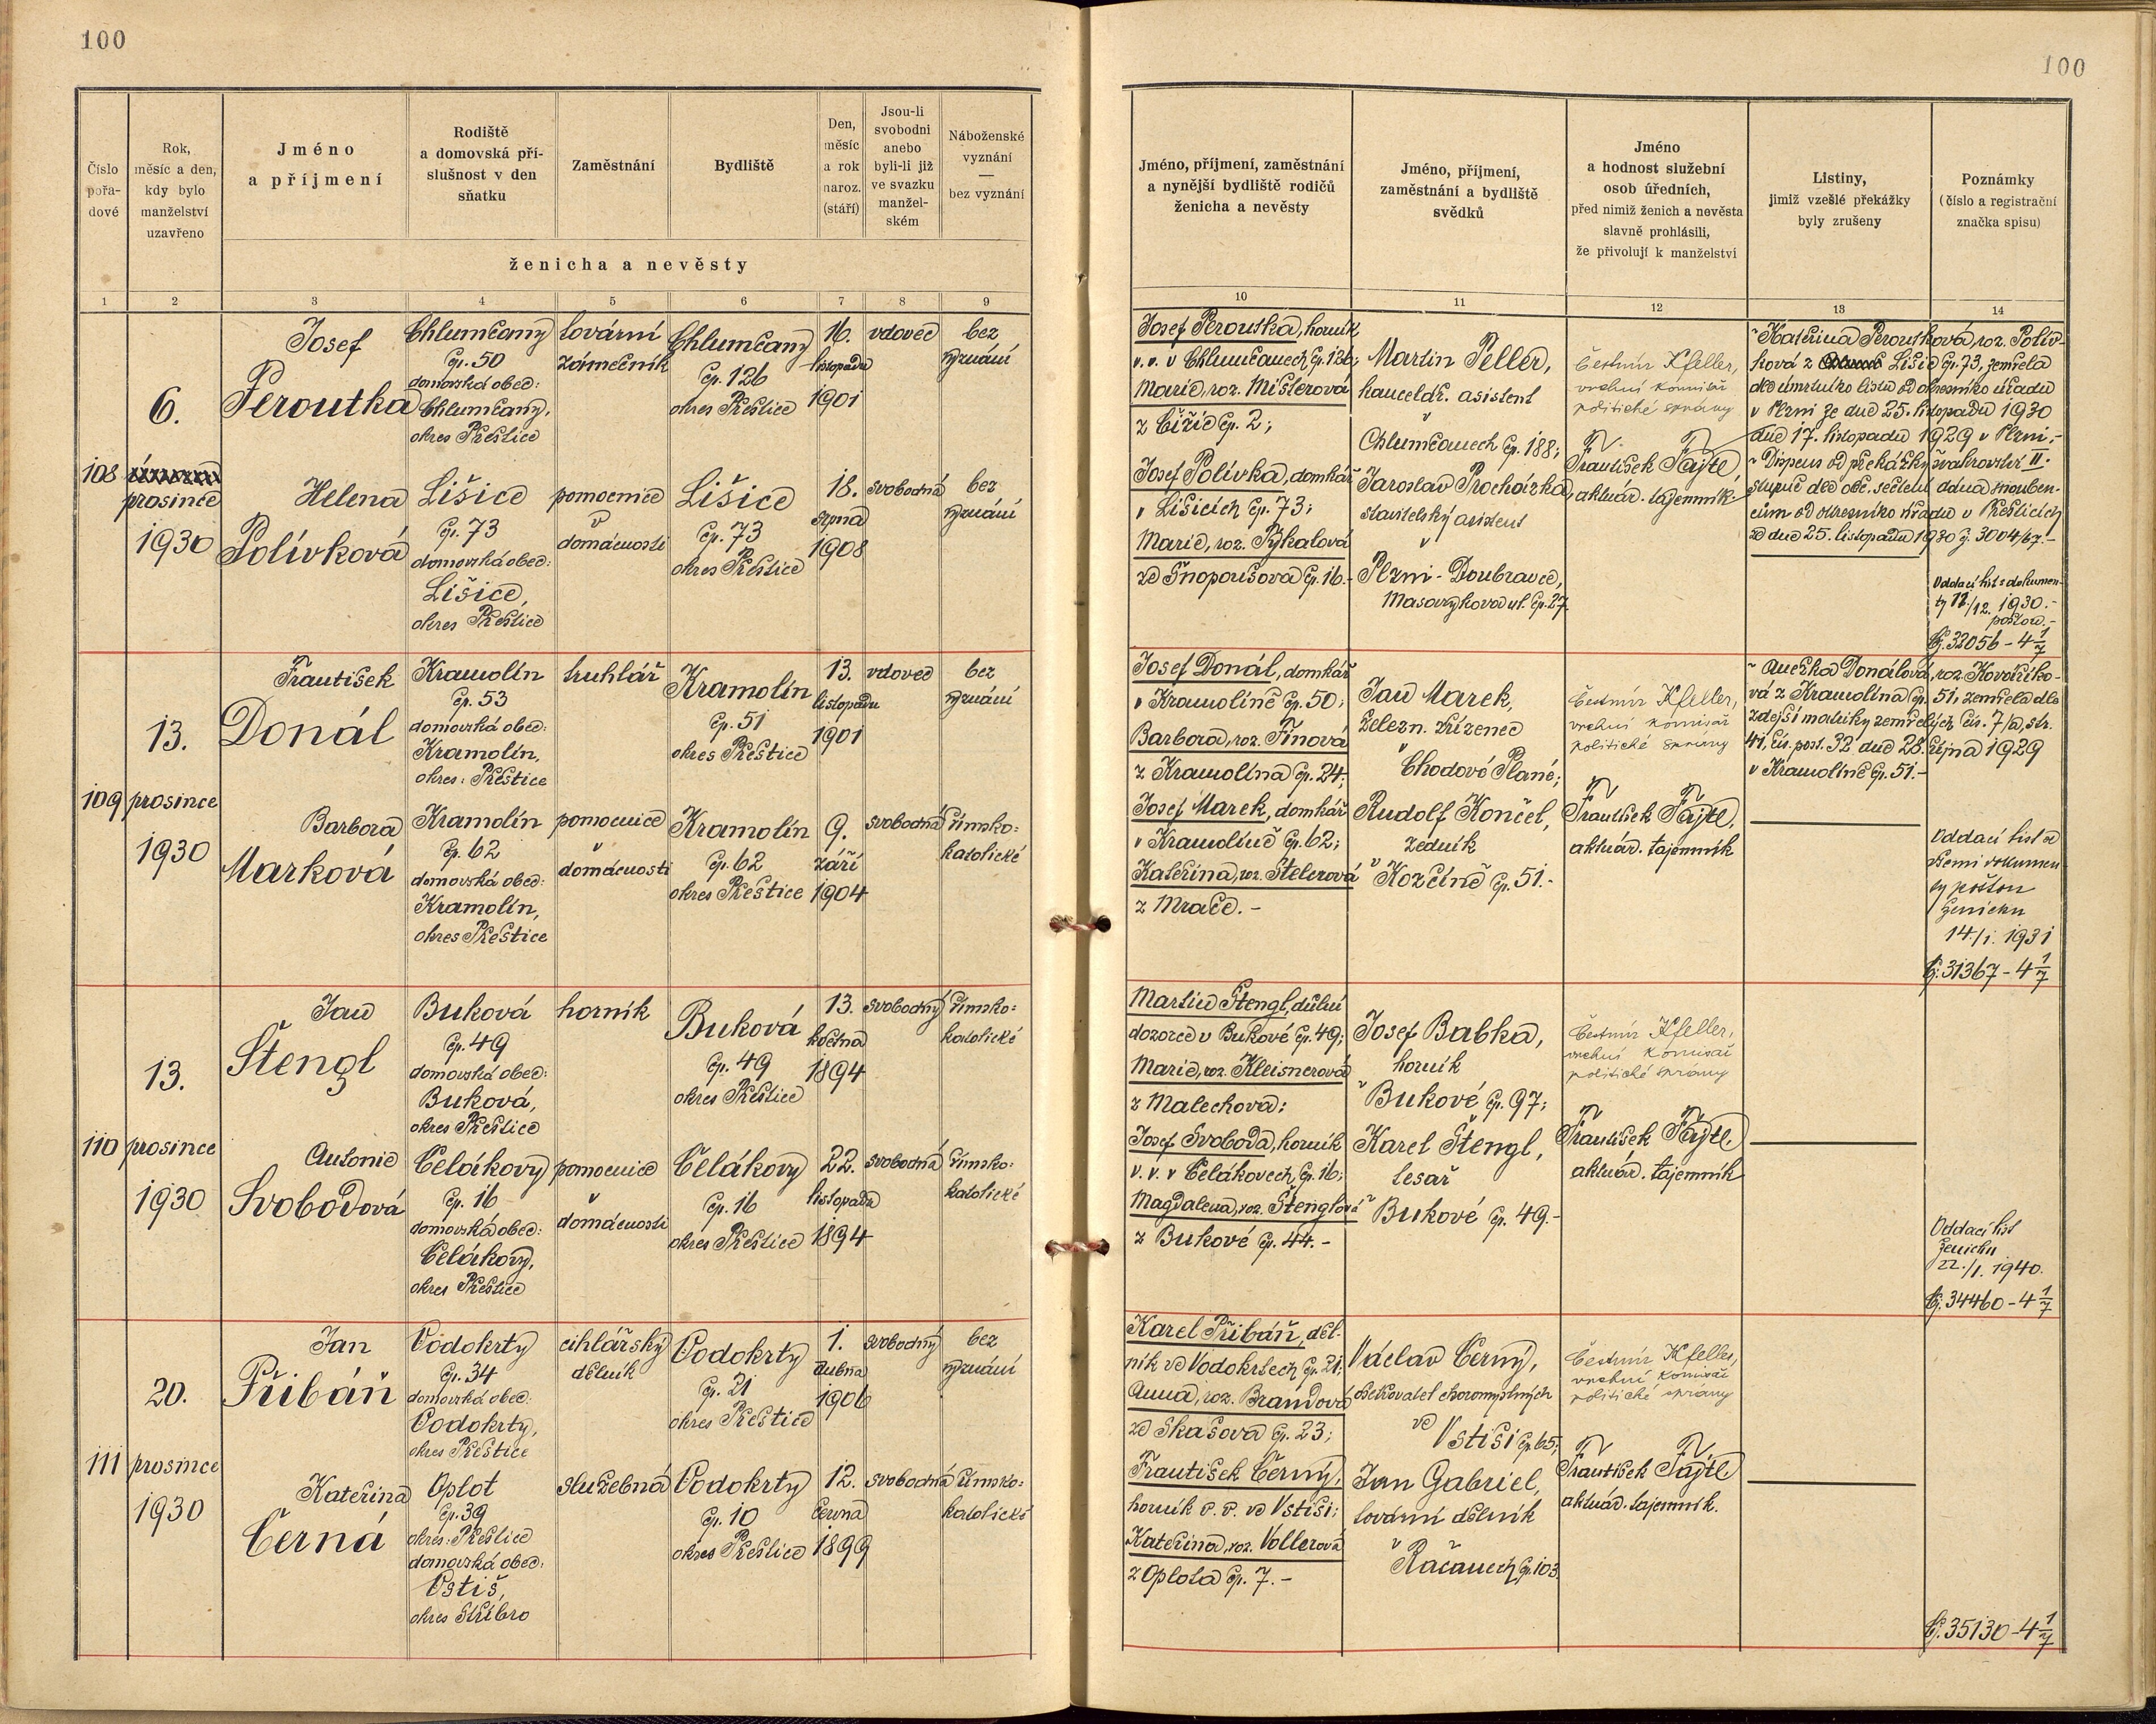 100
100
Číslo pořadové
Rok, měsíc a den, kdy bylo manželství uzavřeno
Jméno a příjmení
Rodiště a domovská příslušnost v den sňatku
Zaměstnání
Bydliště
Den, měsíc a rok naroz. (stáří)
Jsou-li svobodni anebo byli-li již ve svazku manželském
Náboženské vyznání — bez vyznání
ženicha a nevěsty
Jméno, příjmení, zaměstnání a nynější bydliště rodičů ženicha a nevěsty
Jméno, příjmení, zaměstnání a bydliště svědků
Jméno a hodnost služební osob úředních, před nimiž ženich a nevěsta slavně prohlásili, že přivolují k manželství
Listiny, jimiž vzešlé překážky byly zrušeny
Poznámky (číslo a registrační značka spisu)
1 2 3 4 5 6 7 8 9
10 11 12 13 14
108
6.
prosince
1930
Josef
Peroutka
Chlumčany
čp. 50
domovská obec:
Chlumčany,
okres Přeštice
tovární
zámečník
Chlumčany
čp. 126
okres Přeštice
16.
listopadu
1901
vdovec
bez
vyznání
Helena
Polívková
Lišice
čp. 73
domovská obec:
Lišice,
okres Přeštice
pomocnice
v
domácnosti
Lišice
čp. 73
okres Přeštice
18.
srpna
1908
svobodná
bez
vyznání
Josef Peroutka, horník
v. v. v Chlumčanech čp. 126;
Marie, roz. Mišterová
z Čižic čp. 2;
Josef Polívka, domkář
v Lišicích čp. 73;
Marie, roz. Pykalová
ze Snopoušova čp. 16.-
Martin Peller,
kancelář. asistent
v
Chlumčanech čp. 188;
Jaroslav Procházka,
stavitelský asistent
v
Plzni-Doubravce,
Masarykova ul. čp. 27.
Čestmír Kfeller,
vrchní komisař
politické správy
František Fajtl,
aktuár. tajemník
Kateřina Peroutková, roz. Polív-
ková z Lišic čp. 73, zemřela
dle úmrtního listu od okresního úřadu
v Plzni ze dne 25. listopadu 1930
dne 17. listopadu 1929 v Plzni.-
Dispens od překážky švakrovství II.
stupně dle obč. sečtení dána snouben-
cům od okresního úřadu v Přešticích
ze dne 25. listopadu 1930 čj. 3004/67.-
Oddací list s dokumen-
ty 12./12. 1930.-
poštou.-
Čj. 32056 - 4 1/7
109
13.
prosince
1930
František
Donál
Kramolín
čp. 53
domovská obec:
Kramolín,
okres: Přeštice
truhlář
Kramolín
čp. 51
okres Přeštice
13.
listopadu
1901
vdovec
bez
vyznání
Barbora
Marková
Kramolín
čp. 62
domovská obec:
Kramolín,
okres Přeštice
pomocnice
v
domácnosti
Kramolín
čp. 62
okres Přeštice
9.
září
1904
svobodná
římsko:
katolické
Josef Donál, domkář
v Kramolíně čp. 50;
Barbora, roz. Finová
z Kramolína čp. 24;
Josef Marek, domkář
v Kramolíně čp. 62;
Kateřina, roz. Štelcrová
z Mrače.-
Jan Marek,
železn. zřízenec
v
Chodové Plané;
Rudolf Končel,
zedník
v Kozčíně čp. 51.-
Čestmír Kfeller,
vrchní komisař
politické správy
František Fajtl,
aktuár. tajemník
Anežka Donálová, roz. Kovaříko-
vá z Kramolína čp. 51, zemřela dle
zdejší matriky zemřelých čís. 7/a, str.
41, čís. poř. 32 dne 28. října 1929
v Kramolíně čp. 51.-
Oddací list a
všemi dokumen
ty poštou
ženichu
14./1. 1931
Čj. 31367 - 4 1/7
110
13.
prosince
1930
Jan
Štengl
Buková
čp. 49
domovská obec:
Buková,
okres Přeštice
horník
Buková
čp. 49
okres Přeštice
13.
května
1894
svobodný
římsko:
katolické
Antonie
Svobodová
Čelákovy
čp. 16
domovská obec:
Čelákovy,
okres Přeštice
pomocnice
v
domácnosti
Čelákovy
čp. 16
okres Přeštice
22.
listopadu
1894
svobodná
římsko:
katolické
Martin Štengl, důlní
dozorce v Bukové čp. 49;
Marie, roz. Kleisnerová
z Malechova;
Josef Svoboda, horník
v. v. v Čelákovech čp. 16;
Magdalena, roz. Štenglová
z Bukové čp. 44.-
Josef Babka,
horník
v Bukové čp. 97;
Karel Štengl,
tesař
v Bukové čp. 49.-
Čestmír Kfeller,
vrchní komisař
politické správy
František Fajtl,
aktuár. tajemník
Oddací list
ženichu
22./1. 1940.
Čj. 34460 - 4 1/7
111
20.
prosince
1930
Jan
Přibáň
Vodokrty
čp. 34
domovská obec:
Vodokrty,
okres Přeštice
cihlářský
dělník
Vodokrty
čp. 21
okres Přeštice
1.
dubna
1906
svobodný
bez
vyznání
Kateřina
Černá
Oplot
čp. 39
okres: Přeštice
domovská obec:
Vstiš,
okres Stříbro
služebná
Vodokrty
čp. 10
okres Přeštice
12.
června
1899
svobodná
římsko:
katolické
Karel Přibáň, děl-
ník ve Vodokrtech čp. 21;
Anna, roz. Brandová
ze Skašova čp. 23;
František Černý,
horník v. v. ve Vstiši;
Kateřina, roz. Vollerová
z Oplota čp. 7.-
Václav Černý,
ošetřovatel choromyslných
ve
Vstiši čp. 65;
Jan Gabriel,
tovární dělník
v
Račanech čp. 103
Čestmír Kfeller,
vrchní komisař
politické správy
František Fajtl,
aktuár. tajemník.
Čj. 35130 - 4 1/7